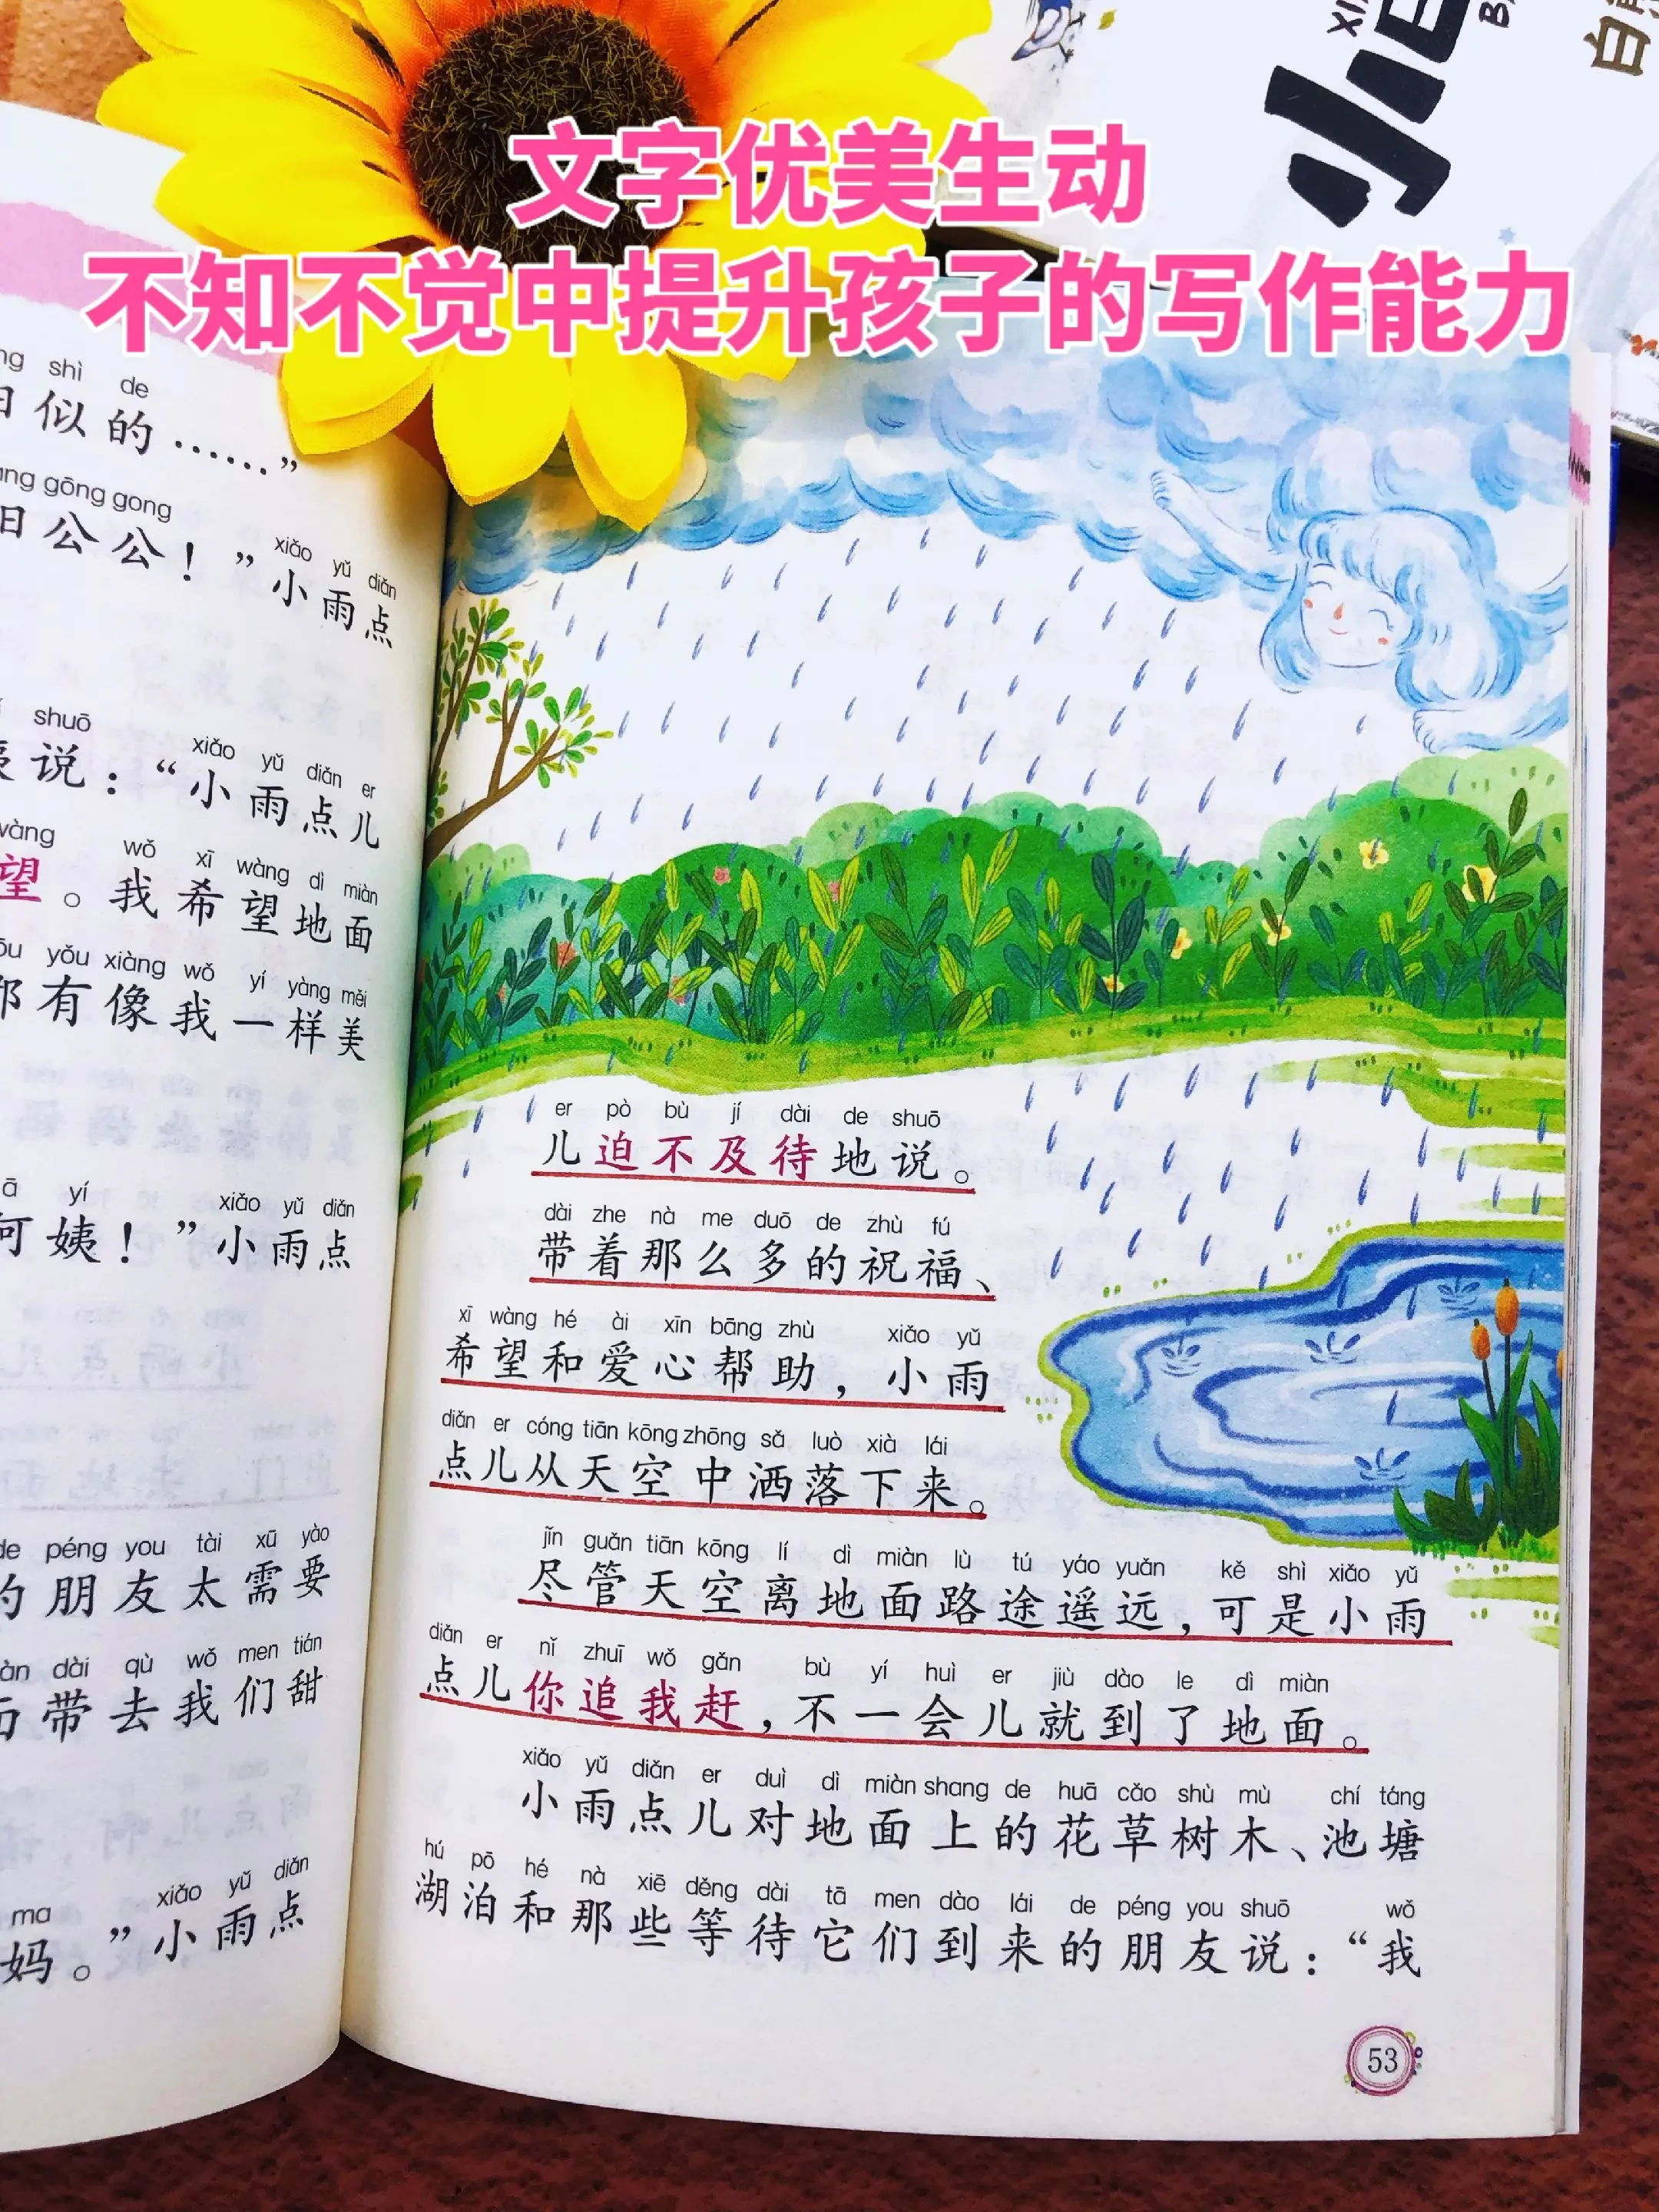 文字优美生动
不知不觉中提升孩子的写作能力
小
白
shì de
似的……”
gōng gong xiǎo yǔ diǎn
公公！”小雨点
shuō xiǎo yǔ diǎn er
说：“小雨点儿
wàng wǒ xī wàng dì miàn
望。我希望地面
yǒu xiàng wǒ yí yàng měi
有像我一样美
yí xiǎo yǔ diǎn
姨！”小雨点
de péng you tài xū yào
的朋友太需要
dài qù wǒ men tián
带去我们甜
ma xiǎo yǔ diǎn
妈。”小雨点
er pò bù jí dài de shuō
儿迫不及待地说。
dài zhe nà me duō de zhù fú
带着那么多的祝福、
xī wàng hé ài xīn bāng zhù xiǎo yǔ
希望和爱心帮助，小雨
diǎn er cóng tiān kōng zhōng sǎ luò xià lái
点儿从天空中洒落下来。
jǐn guǎn tiān kōng lí dì miàn lù tú yáo yuǎn kě shì xiǎo yǔ
尽管天空离地面路途遥远，可是小雨
diǎn er nǐ zhuī wǒ gǎn bù yí huì er jiù dào le dì miàn
点儿你追我赶，不一会儿就到了地面。
xiǎo yǔ diǎn er duì dì miàn shang de huā cǎo shù mù chí táng
小雨点儿对地面上的花草树木、池塘
hú pō hé nà xiē děng dài tā men dào lái de péng you shuō wǒ
湖泊和那些等待它们到来的朋友说：“我
53